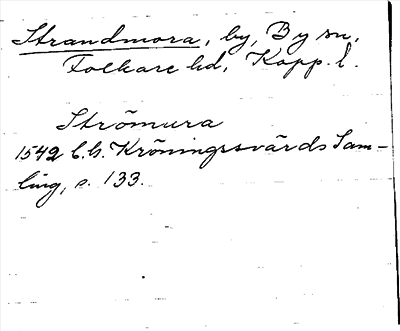 Strandmora, by, By sn,
Folkare hd, Kopp. l.
Strömura
1542 C.G. Kröningsvärds Sam-
ling, s. 133.